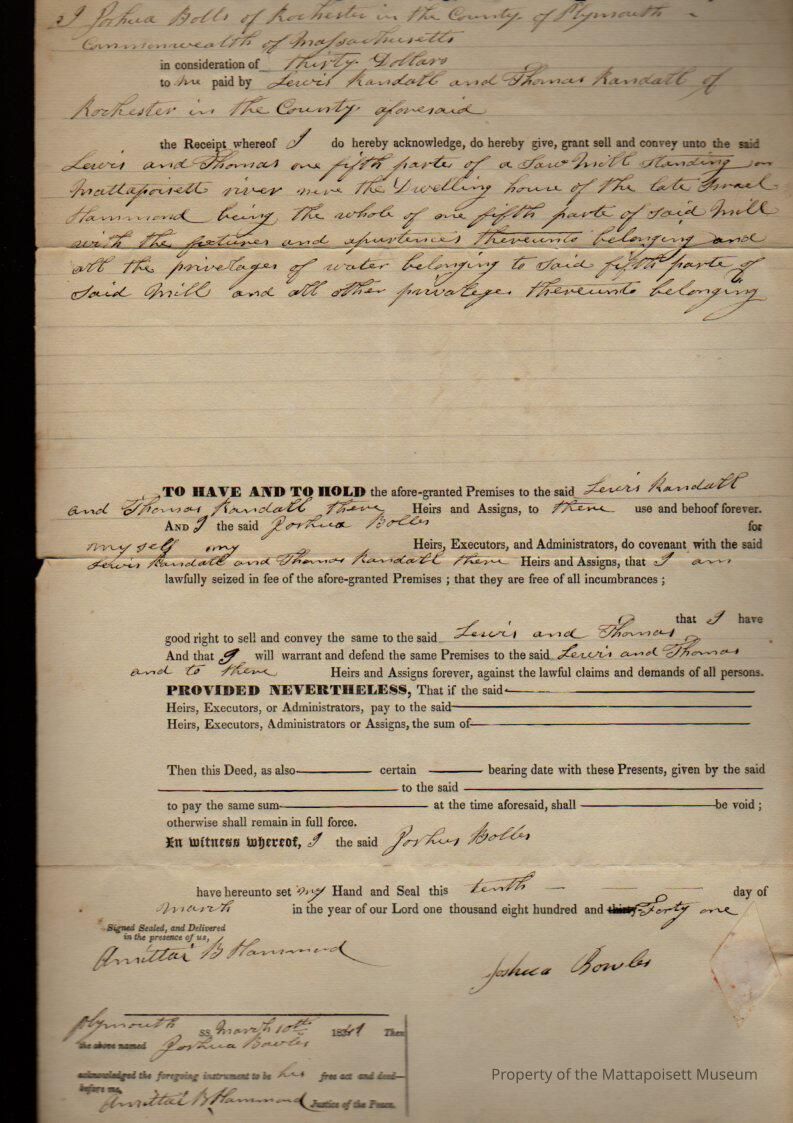 I Joshua Bolls of Rochester in the County of Plymouth
Commonwealth of Massachusetts
in consideration of thirty Dollars
to me paid by Lewis Randall and Thomas Randall of
Rochester in the County aforesaid
the Receipt whereof I do hereby acknowledge, do hereby give, grant sell and convey unto the said
Lewis and Thomas one fifth parte of a Saw Mill standing on
Mattapoisett river nere the Dwelling house of the late Israel
Hammond being the whole of one fifth parte of said Mill
with the fixtures and apurtenies thereunto belonging and
all the privelages of water belonging to said fifth parte of
said Mill and all other privaleges thereunto belonging
TO HAVE AND TO HOLD the afore-granted Premises to the said Lewis Randall
and Thomas Randall there Heirs and Assigns, to there use and behoof forever.
AND I the said Joshua Bolles for
my self my Heirs, Executors, and Administrators, do covenant with the said
Lewis Randall and Thomas Randall there Heirs and Assigns, that I am
lawfully seized in fee of the afore-granted Premises ; that they are free of all incumbrances ;
that I have
good right to sell and convey the same to the said Lewis and Thomas
And that I will warrant and defend the same Premises to the said Lewis and Thomas
and to there Heirs and Assigns forever, against the lawful claims and demands of all persons.
PROVIDED NEVERTHELESS, That if the said
Heirs, Executors, or Administrators, pay to the said
Heirs, Executors, Administrators or Assigns, the sum of
Then this Deed, as also certain bearing date with these Presents, given by the said
to the said
to pay the same sum at the time aforesaid, shall be void ;
otherwise shall remain in full force.
In witness whereof, I the said Joshua Bolles
have hereunto set my Hand and Seal this tenth day of
March in the year of our Lord one thousand eight hundred and thirty Forty one
Signed Sealed, and Delivered
in the presence of us,
Amittai B Hammond
Joshua Bowles
Plymouth ss. March 10th 1841 Then
the above named Joshua Bowles
acknowledged the foregoing instrument to be his free act and deed—
before me,
Amittai B Hammond Justice of the Peace.
Property of the Mattapoisett Museum